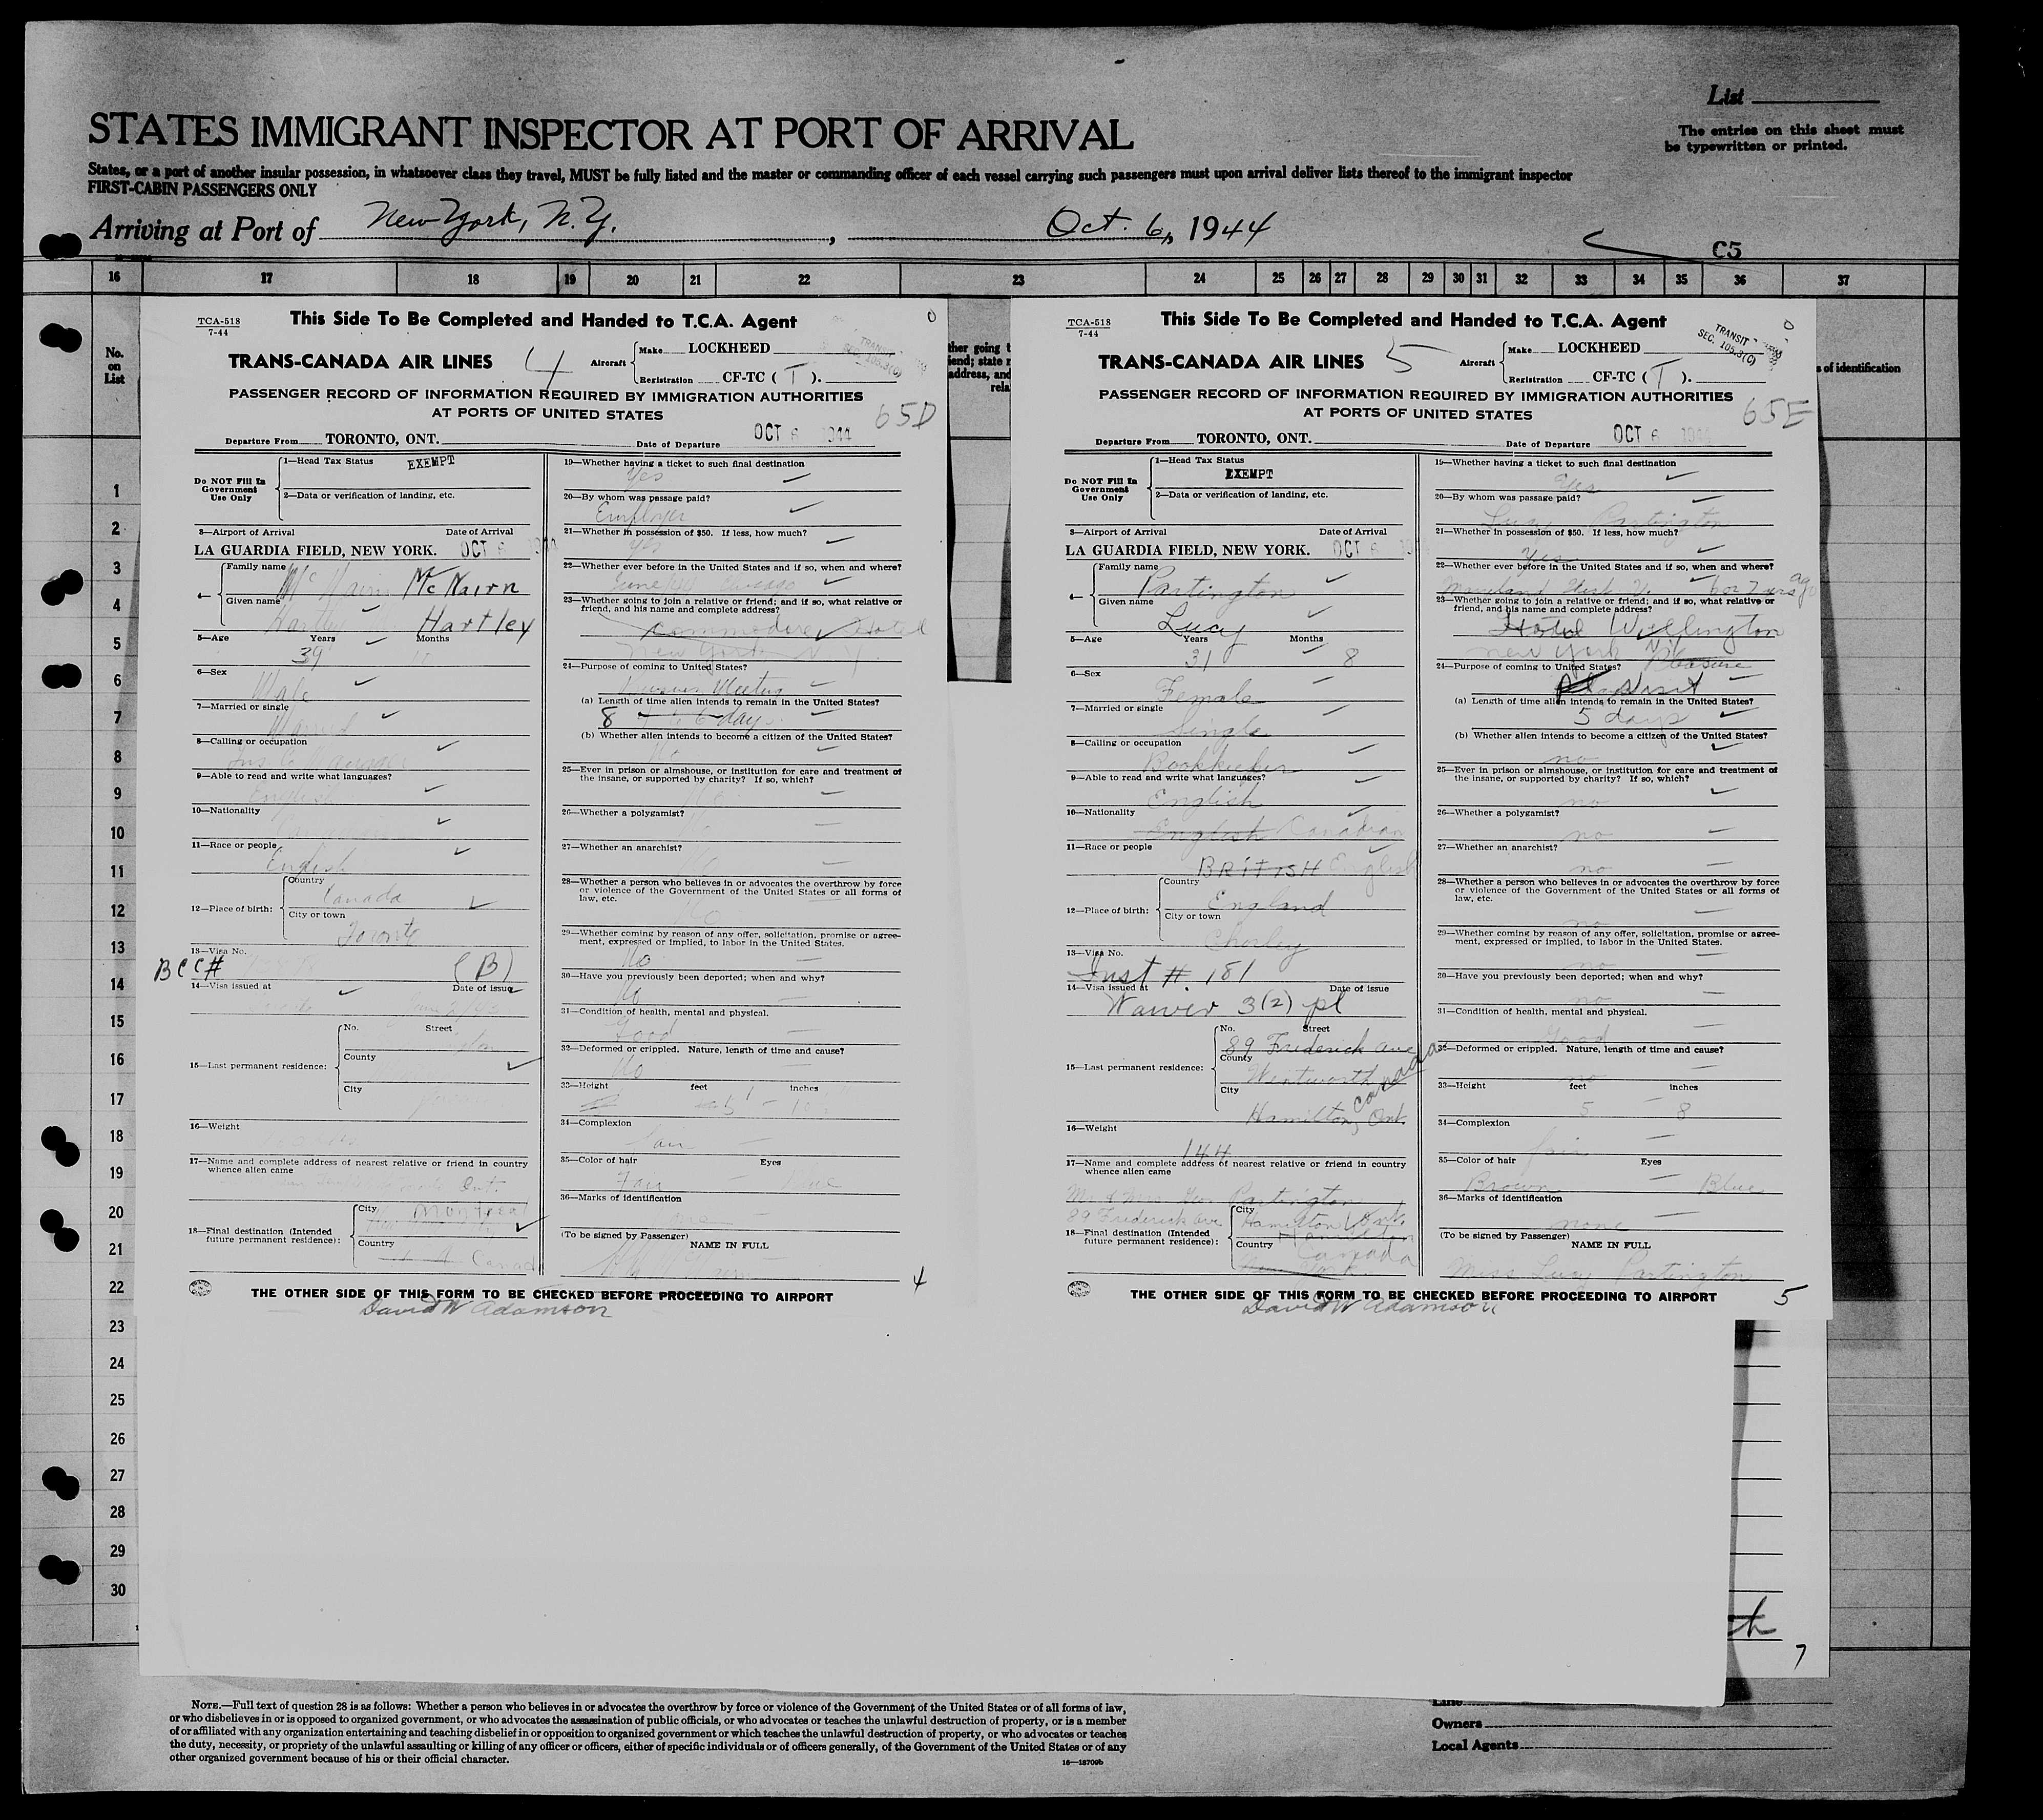 List
The entries on this sheet must
be typewritten or printed.
STATES IMMIGRANT INSPECTOR AT PORT OF ARRIVAL
States, or a port of another insular possession, in whatsoever class they travel, MUST be fully listed and the master or commanding officer of each vessel carrying such passengers must upon arrival deliver lists thereof to the immigrant inspector
FIRST-CABIN PASSENGERS ONLY
Arriving at Port of New York, N.Y., Oct. 6, 1944
C5
16 17 18 19 20 21 22 23 24 25 26 27 28 29 30 31 32 33 34 35 36 37
No.
on
List
1
2
3
4
5
6
7
8
9
10
11
12
13
14
15
16
17
18
19
20
21
22
23
24
25
26
27
28
29
30
TCA-518
7-44
This Side To Be Completed and Handed to T.C.A. Agent
TRANS-CANADA AIR LINES 4
Aircraft Make LOCKHEED
Registration CF-TC ( T ).
TRANSIT
SEC. 105.3(C)
PASSENGER RECORD OF INFORMATION REQUIRED BY IMMIGRATION AUTHORITIES
AT PORTS OF UNITED STATES
65D
Departure From TORONTO, ONT. Date of Departure OCT 6 1944
Do NOT Fill In
Government
Use Only
1—Head Tax Status EXEMPT
2—Data or verification of landing, etc.
3—Airport of Arrival Date of Arrival
LA GUARDIA FIELD, NEW YORK. OCT 6
4— Family name McNairn
Given name Hartley
5—Age Years Months
39
6—Sex
Male
7—Married or single
Married
8—Calling or occupation
9—Able to read and write what languages?
English
10—Nationality
11—Race or people
English
12—Place of birth: Country
Canada
City or town
Toronto
13—Visa No.
BCC# (B)
14—Visa issued at Date of issue
15—Last permanent residence: No. Street
County
City
16—Weight
17—Name and complete address of nearest relative or friend in country
whence alien came
Ont.
18—Final destination (Intended
future permanent residence): City Montreal
Country Canada
19—Whether having a ticket to such final destination
Yes
20—By whom was passage paid?
Employer
21—Whether in possession of $50. If less, how much?
Yes
22—Whether ever before in the United States and if so, when and where?
June Chicago
23—Whether going to join a relative or friend; and if so, what relative or
friend, and his name and complete address?
Commodore Hotel
New York N.Y.
24—Purpose of coming to United States?
Business Meeting
(a) Length of time alien intends to remain in the United States?
8 days
(b) Whether alien intends to become a citizen of the United States?
No
25—Ever in prison or almshouse, or institution for care and treatment of
the insane, or supported by charity? If so, which?
No
26—Whether a polygamist?
No
27—Whether an anarchist?
No
28—Whether a person who believes in or advocates the overthrow by force
or violence of the Government of the United States or all forms of
law, etc.
No
29—Whether coming by reason of any offer, solicitation, promise or agree-
ment, expressed or implied, to labor in the United States.
No
30—Have you previously been deported; when and why?
No
31—Condition of health, mental and physical.
Good
32—Deformed or crippled. Nature, length of time and cause?
No
33—Height feet inches
34—Complexion
Fair
35—Color of hair Eyes
Fair Blue
36—Marks of identification
(To be signed by Passenger) NAME IN FULL
THE OTHER SIDE OF THIS FORM TO BE CHECKED BEFORE PROCEEDING TO AIRPORT
4
David W Adamson
TCA-518
7-44
This Side To Be Completed and Handed to T.C.A. Agent
TRANS-CANADA AIR LINES 5
Aircraft Make LOCKHEED
Registration CF-TC ( T ).
TRANSIT
SEC. 105.3(C)
PASSENGER RECORD OF INFORMATION REQUIRED BY IMMIGRATION AUTHORITIES
AT PORTS OF UNITED STATES
65E
Departure From TORONTO, ONT. Date of Departure OCT 6 1944
Do NOT Fill In
Government
Use Only
1—Head Tax Status
EXEMPT
2—Data or verification of landing, etc.
3—Airport of Arrival Date of Arrival
LA GUARDIA FIELD, NEW YORK. OCT 6
4— Family name
Partington
Given name
Lucy
5—Age Years Months
31 8
6—Sex
Female
7—Married or single
Single
8—Calling or occupation
Bookkeeper
9—Able to read and write what languages?
English
10—Nationality
English Canadian
11—Race or people
BRITISH English
12—Place of birth: Country
England
City or town
Chorley
13—Visa No.
Inst #. 181
14—Visa issued at Date of issue
Waiver 3(2) pl
15—Last permanent residence: No. Street
89 Frederick Ave
County
Wentworth Canada
City
Hamilton, Ont.
16—Weight
144
17—Name and complete address of nearest relative or friend in country
whence alien came
Mr & Mrs Geo Partington
89 Frederick Ave Hamilton Ont.
18—Final destination (Intended
future permanent residence): City Hamilton
Country Canada
New York
19—Whether having a ticket to such final destination
Yes
20—By whom was passage paid?
Lucy Partington
21—Whether in possession of $50. If less, how much?
Yes
22—Whether ever before in the United States and if so, when and where?
6 or 7 yrs ago
23—Whether going to join a relative or friend; and if so, what relative or
friend, and his name and complete address?
Hotel Wellington
New York N.Y.
24—Purpose of coming to United States? Pleasure
Visit
(a) Length of time alien intends to remain in the United States?
5 days
(b) Whether alien intends to become a citizen of the United States?
no
25—Ever in prison or almshouse, or institution for care and treatment of
the insane, or supported by charity? If so, which?
no
26—Whether a polygamist?
no
27—Whether an anarchist?
no
28—Whether a person who believes in or advocates the overthrow by force
or violence of the Government of the United States or all forms of
law, etc.
no
29—Whether coming by reason of any offer, solicitation, promise or agree-
ment, expressed or implied, to labor in the United States.
no
30—Have you previously been deported; when and why?
no
31—Condition of health, mental and physical.
Good
32—Deformed or crippled. Nature, length of time and cause?
no
33—Height feet inches
5 8
34—Complexion
fair
35—Color of hair Eyes
Brown Blue
36—Marks of identification
none
(To be signed by Passenger) NAME IN FULL
Miss Lucy Partington
THE OTHER SIDE OF THIS FORM TO BE CHECKED BEFORE PROCEEDING TO AIRPORT
5
David W Adamson
s of identification
7
NOTE.—Full text of question 28 is as follows: Whether a person who believes in or advocates the overthrow by force or violence of the Government of the United States or of all forms of law,
or who disbelieves in or is opposed to organized government, or who advocates the assassination of public officials, or who advocates or teaches the unlawful destruction of property, or is a member
of or affiliated with any organization entertaining and teaching disbelief in or opposition to organized government or which teaches the unlawful destruction of property, or who advocates or teaches
the duty, necessity, or propriety of the unlawful assaulting or killing of any officer or officers, either of specific individuals or of officers generally, of the Government of the United States or of any
other organized government because of his or their official character.
16—18709b
Line
Owners
Local Agents